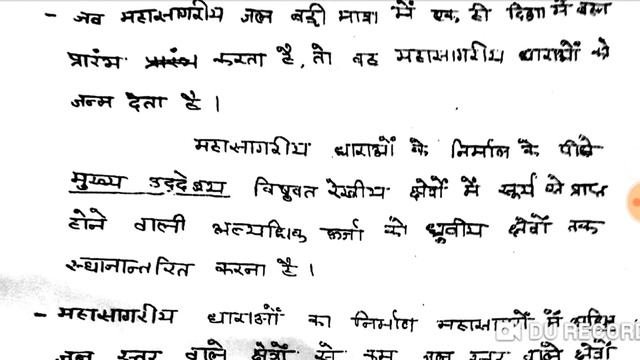 - जब महासागरीय जल बड़ी मात्रा में एक ही दिशा में बहना
प्रारंभ करता है, तो वह महासागरीय धाराओं को
जन्म देता है।
महासागरीय धाराओं के निर्माण के पीछे
मुख्य उद्देश्य विषुवत रेखीय क्षेत्रों में सूर्य से प्राप्त
होने वाली अत्यधिक ऊर्जा को ध्रुवीय क्षेत्रों तक
स्थानान्तरित करना है।
- महासागरीय धाराओं का निर्माण महासागरों में अधिक
जल स्तर वाले क्षेत्रों से कम जल स्तर वाले क्षेत्रों
DU RECORDER